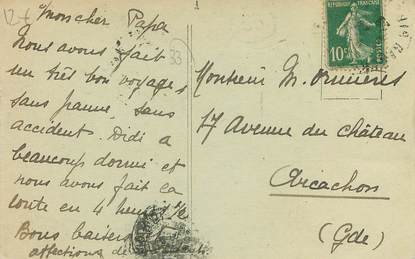 Mon cher Papa
Nous avons fait
un très bon voyage
sans panne, sans
accident. Didi a
beaucoup dormi et
nous avons fait la
route en 4 heures 1/2
Bons baisers
affection de
33
REPUBLIQUE FRANÇAISE
10c
Monsieur M.
17 Avenue du Château
Arcachon
(Gde)